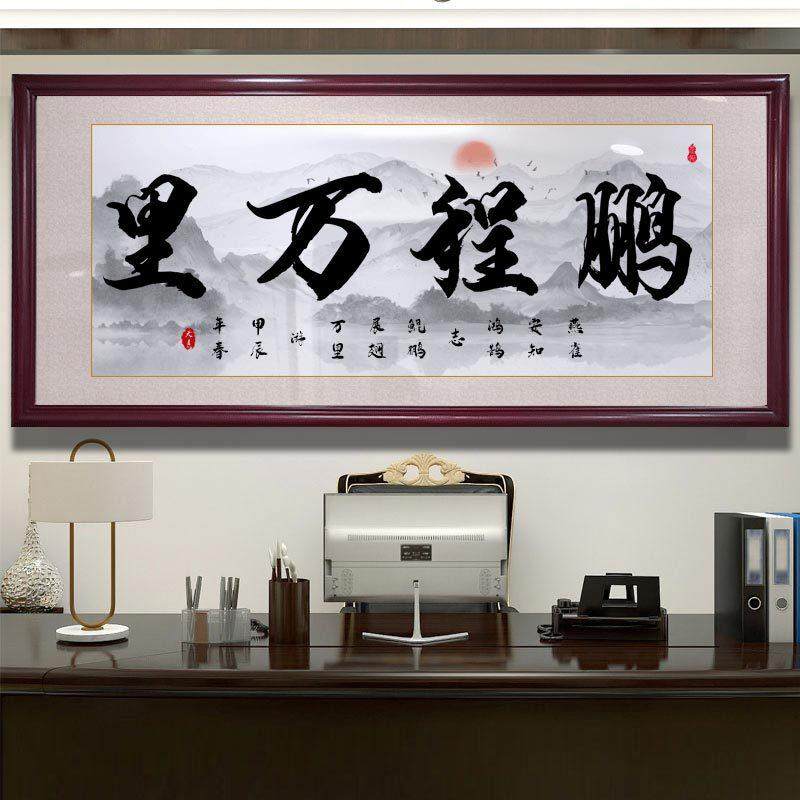 鹏程万里
燕雀
安知
鸿鹄
志
鲲鹏
展翅
万里
游
甲辰
年春